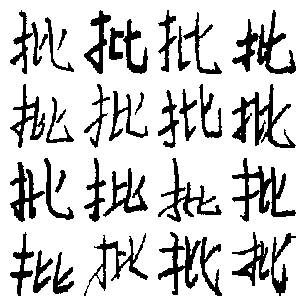 批批批批
批批批批
批批批批
批批批批